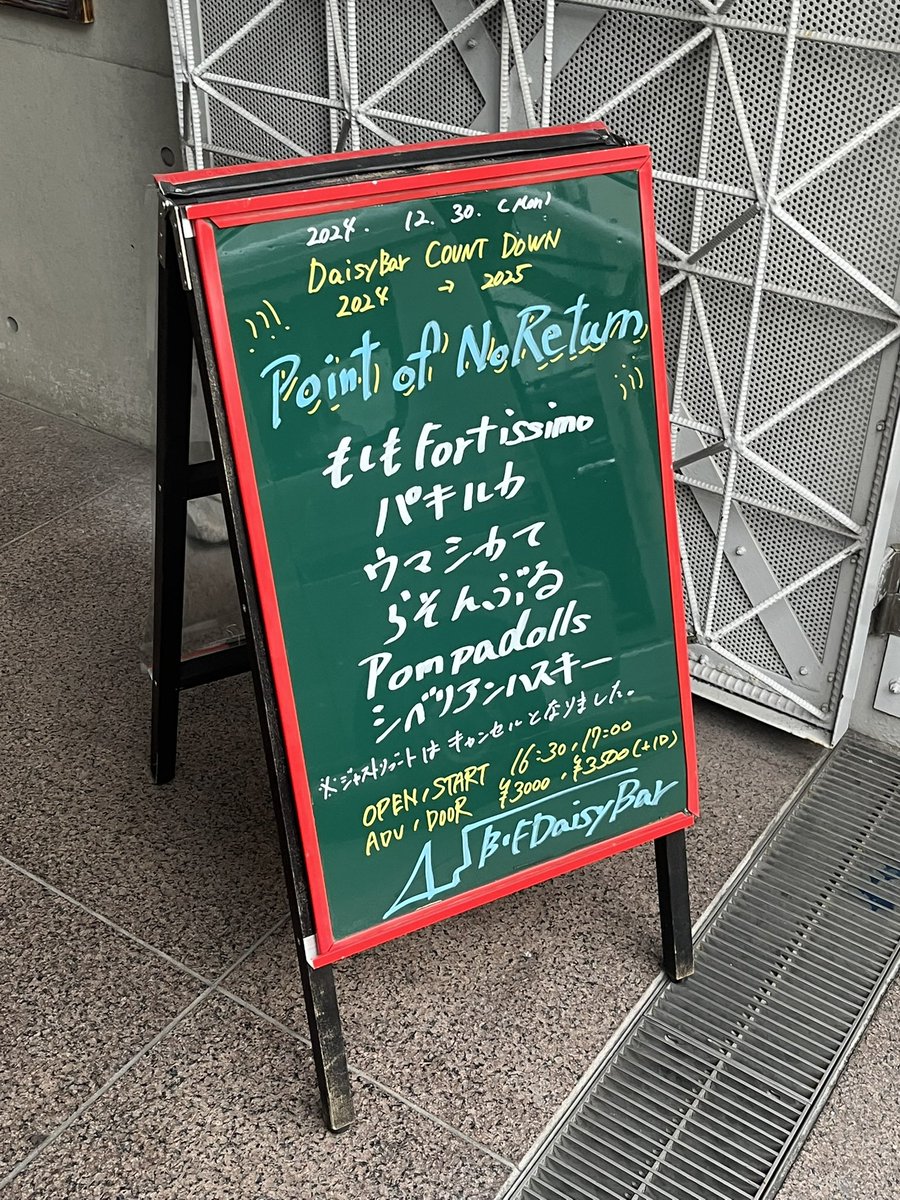 2024. 12. 30. (Mon)
DaisyBar COUNT DOWN
2024 → 2025
Point of No Return
もしもFortissimo
パキルカ
ウマシカて
らそんぶる
Pompadolls
シベリアンハスキー
※ジャストリブートはキャンセルとなりました。
OPEN/START 16:30/17:00
ADV/DOOR ¥3000/¥3500(+1D)
B・F DaisyBar